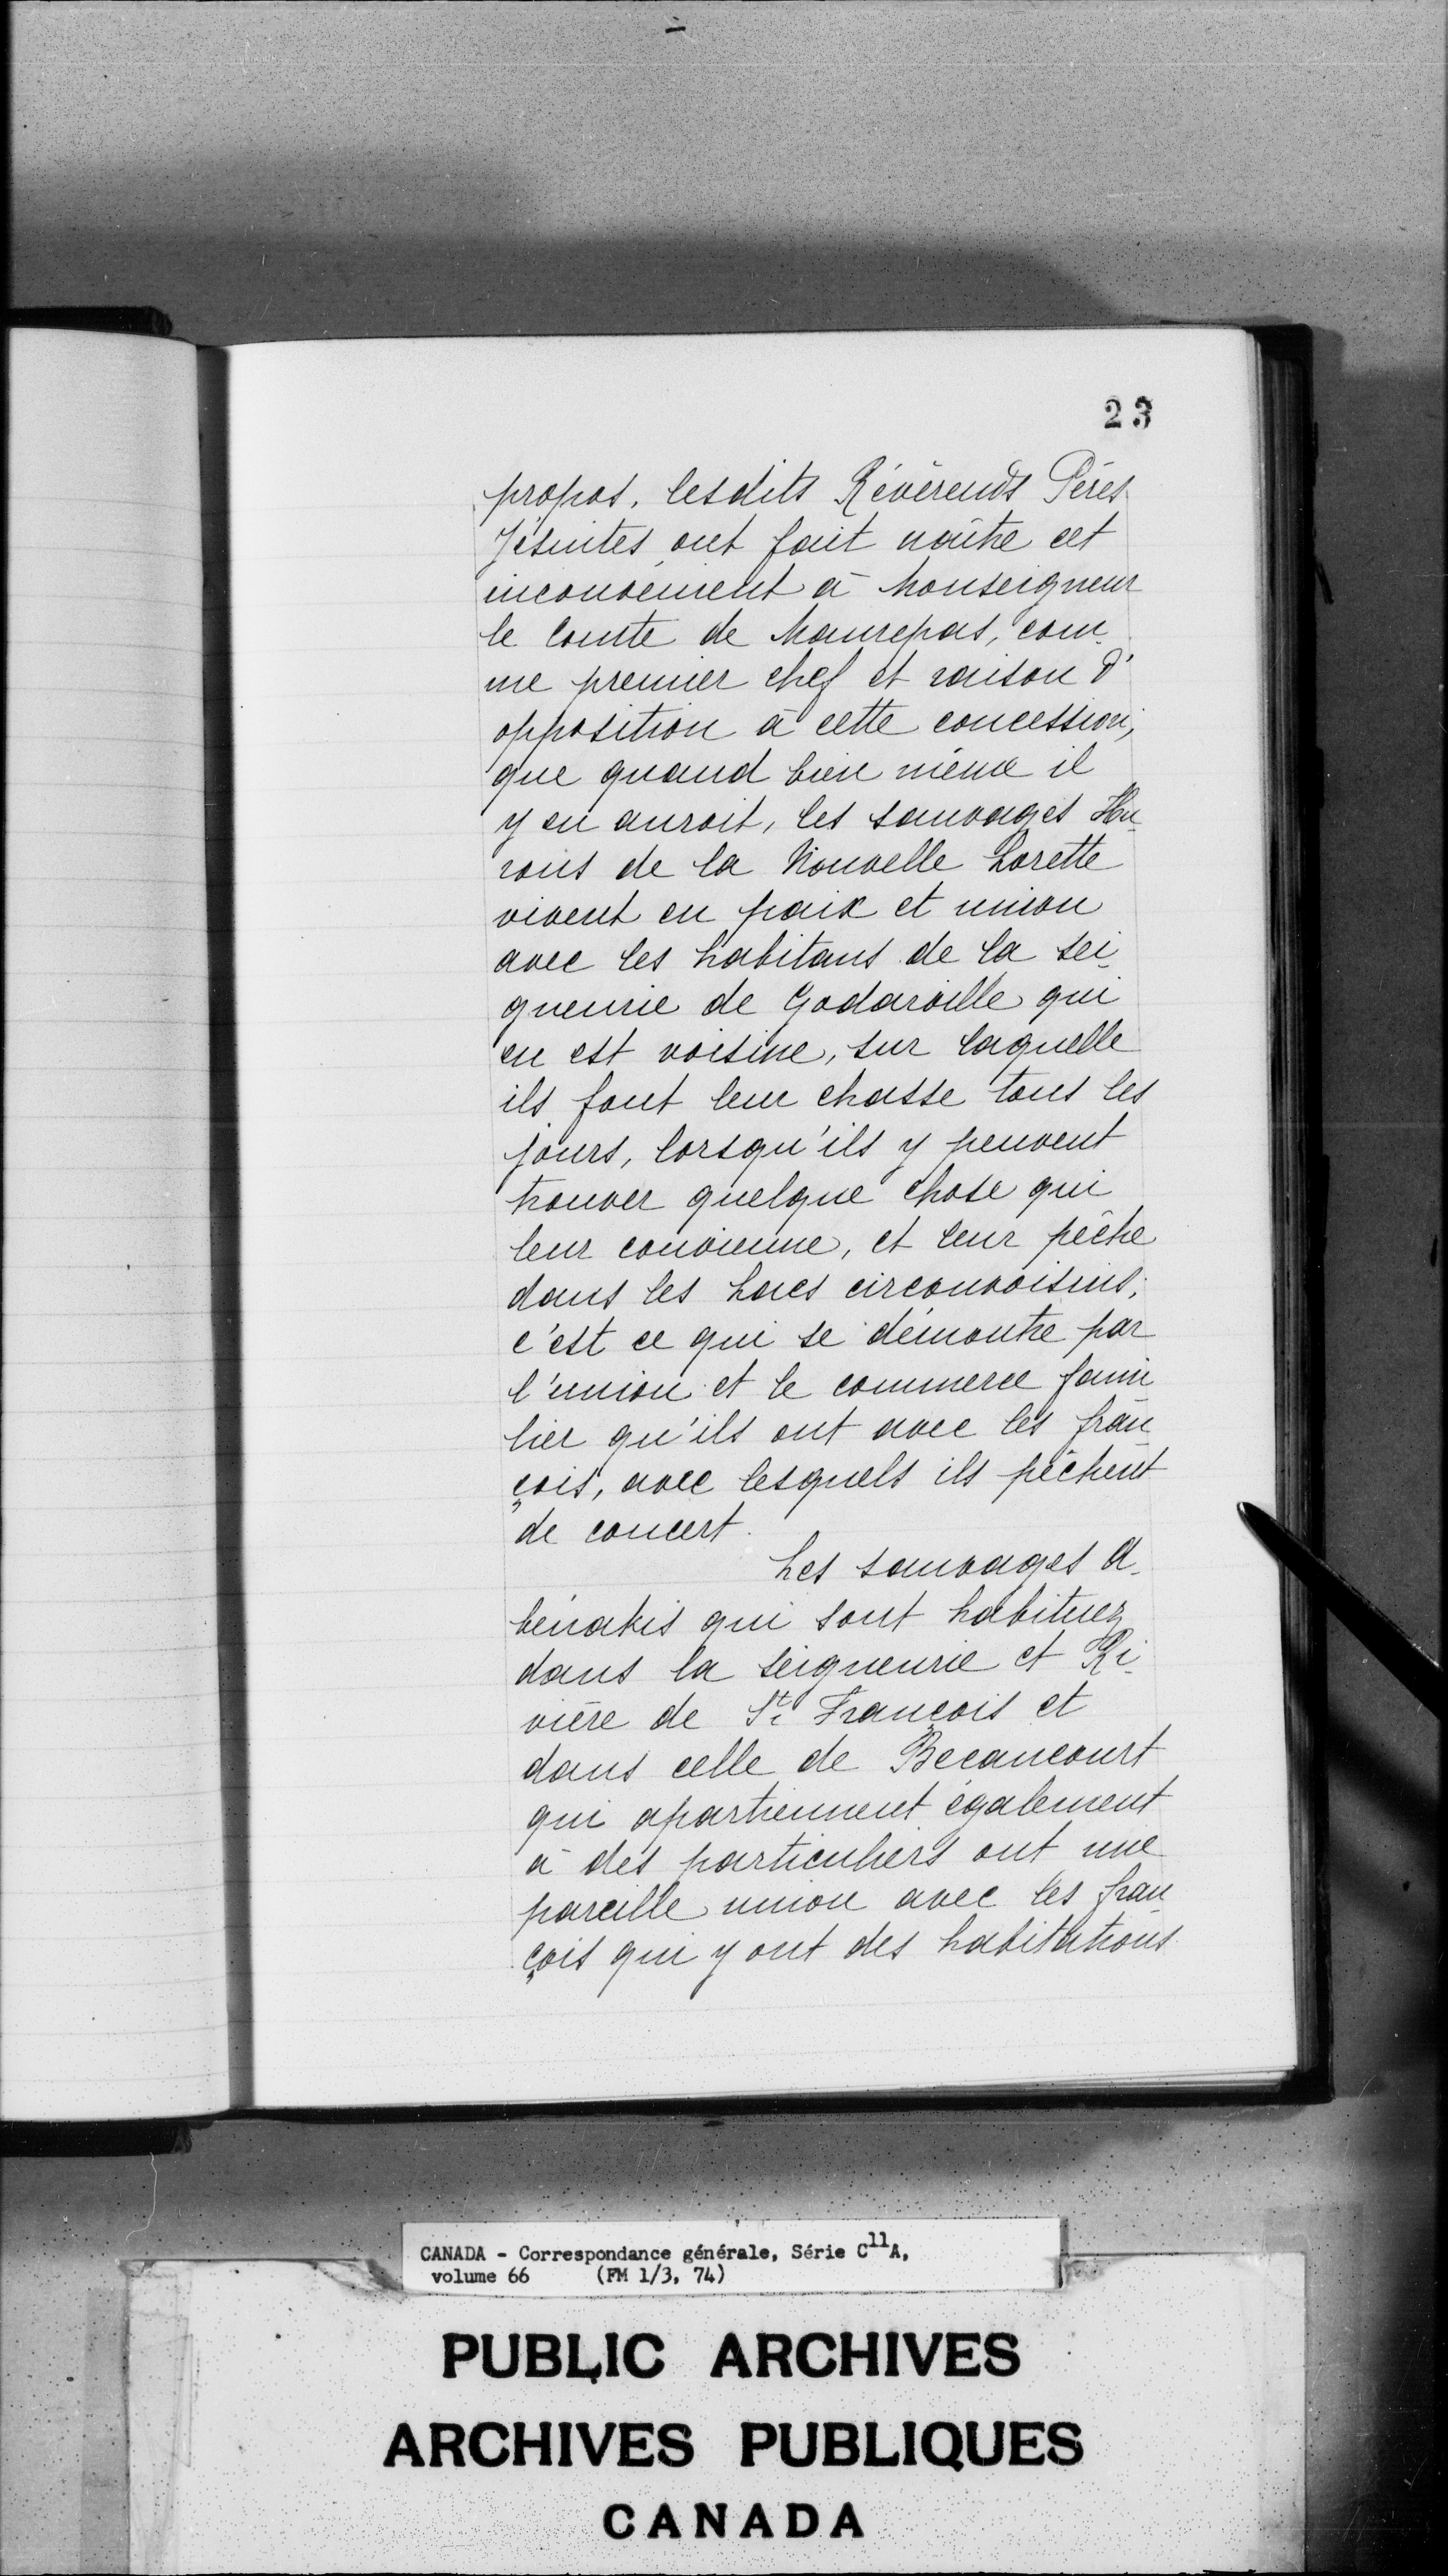 23
propos, lesdits Révérends Péres
Jésuites ont fait naître cet
inconvénient à Monseigneur
le Comte de Maurepas, com-
me premier chef et raison d'
opposition à cette concession,
que quand bien même il
y en auroit, les sauvages Hu-
rons de la Nouvelle Lorette
vivent en paix et union
avec les habitans de la sei-
gneurie de Godarville qui
en est voisine, sur laquelle
ils font leur chasse tous les
jours, lorsqu'ils y peuvent
trouver quelque chose qui
leur convienne, et leur pêche
dans les Lacs circonvoisins,
c'est ce qui se démontre par
l'union et le commerce fami
lier qu'ils ont avec les fran-
çois, avec lesquels ils pêchent
de concert.
Les sauvages A-
bénakis qui sont habituez
dans la seigneurie et Ri-
vière de St. François et
dans celle de Becancourt
qui apartiennent également
à des particuliers ont une
pareille union avec les fran
çois qui y ont des habitations
CANADA - Correspondance générale, Série C11A,
volume 66 (FM 1/3, 74)
PUBLIC ARCHIVES
ARCHIVES PUBLIQUES
CANADA